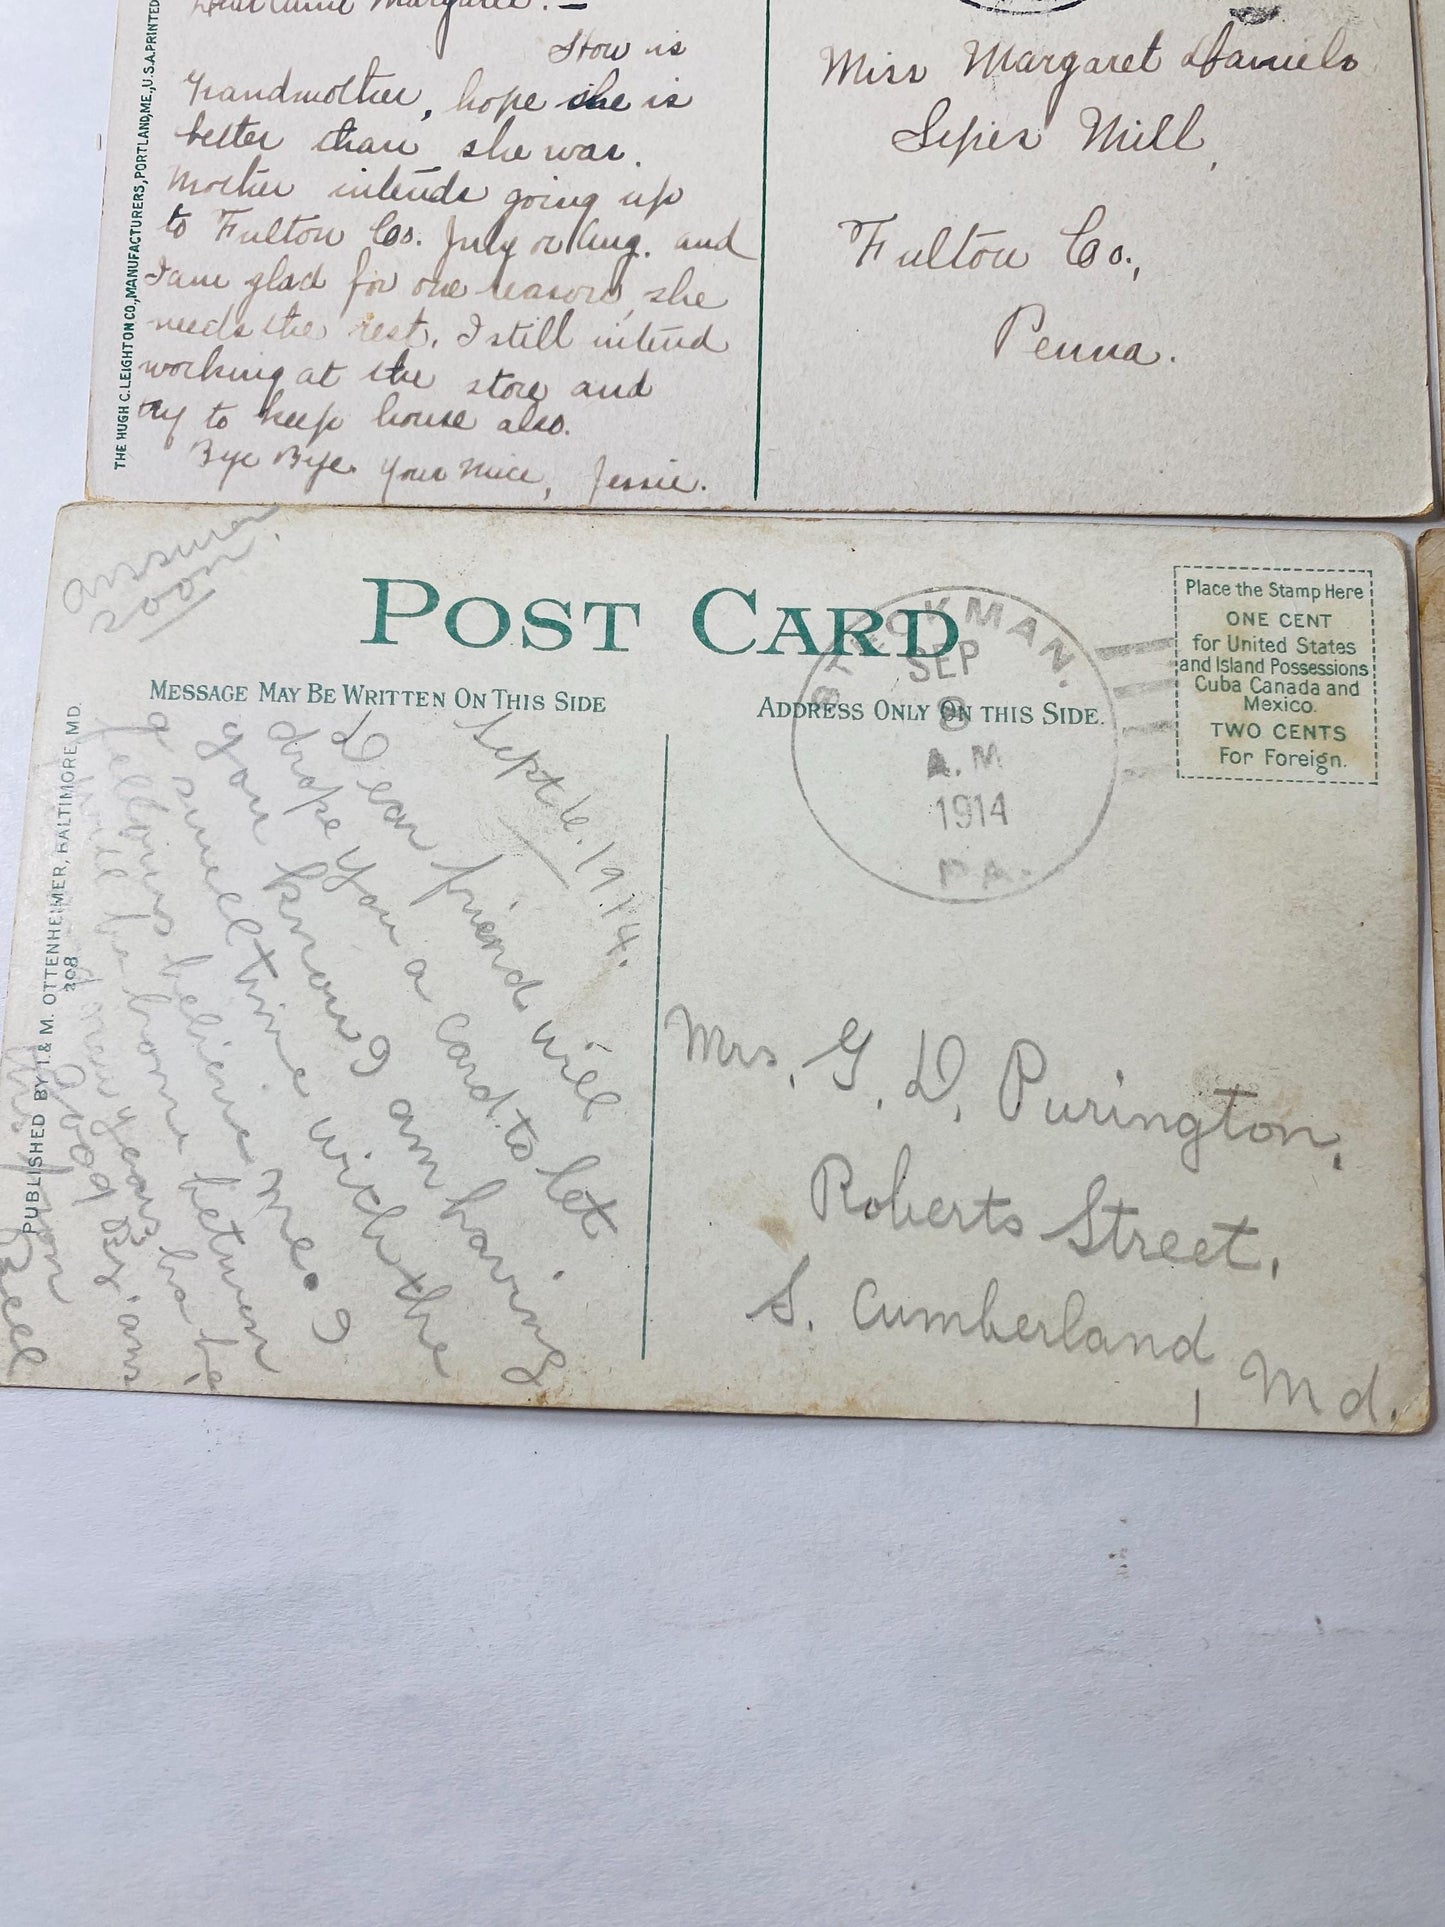 Dear Aunt Margaret: —
How is
Grandmother, hope she is
better than she was.
Mother intends going up
to Fulton Co. July or Aug. and
I am glad for one reason, she
needs the rest. I still intend
working at the store and
try to keep house also.
Bye Bye. Your niece, Jessie.
THE HUGH C. LEIGHTON CO., MANUFACTURERS, PORTLAND, ME., U.S.A. PRINTED
Miss Margaret Daniels
Sipes Mill,
Fulton Co.,
Penna.
answer
soon
POST CARD
MESSAGE MAY BE WRITTEN ON THIS SIDE
ADDRESS ONLY ON THIS SIDE.
Place the Stamp Here
ONE CENT
for United States
and Island Possessions
Cuba Canada and
Mexico.
TWO CENTS
For Foreign.
BEACKMAN.
SEP
8
A.M
1914
PA.
Sept. 6. 19.14.
Dear friend will
drope you a card to let
you know I am having
a smell time with the
fellows believe me. I
will be home between
new years
Good By
from
Bell
PUBLISHED BY I. & M. OTTENHEIMER, BALTIMORE, MD.
208
Mrs. G. D. Purington,
Roberts Street,
S. Cumberland, Md.